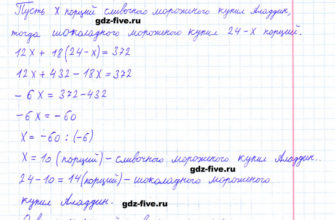 Пусть x порций сливочного мороженого купил Аладдин,
gdz-five.ru
тогда шоколадного мороженого купил 24-x порций.
12x + 18(24-x) = 372
gdz-five.ru
12x + 432 - 18x = 372
-6x = 372-432
gdz-five.ru
-6x = -60
x = -60 : (-6)
gdz-five.ru
x = 10 (порций) - сливочного мороженого купил Аладдин.
24-10 = 14 (порций) - шоколадного мороженого
gdz-five.ru
купил Аладдин.